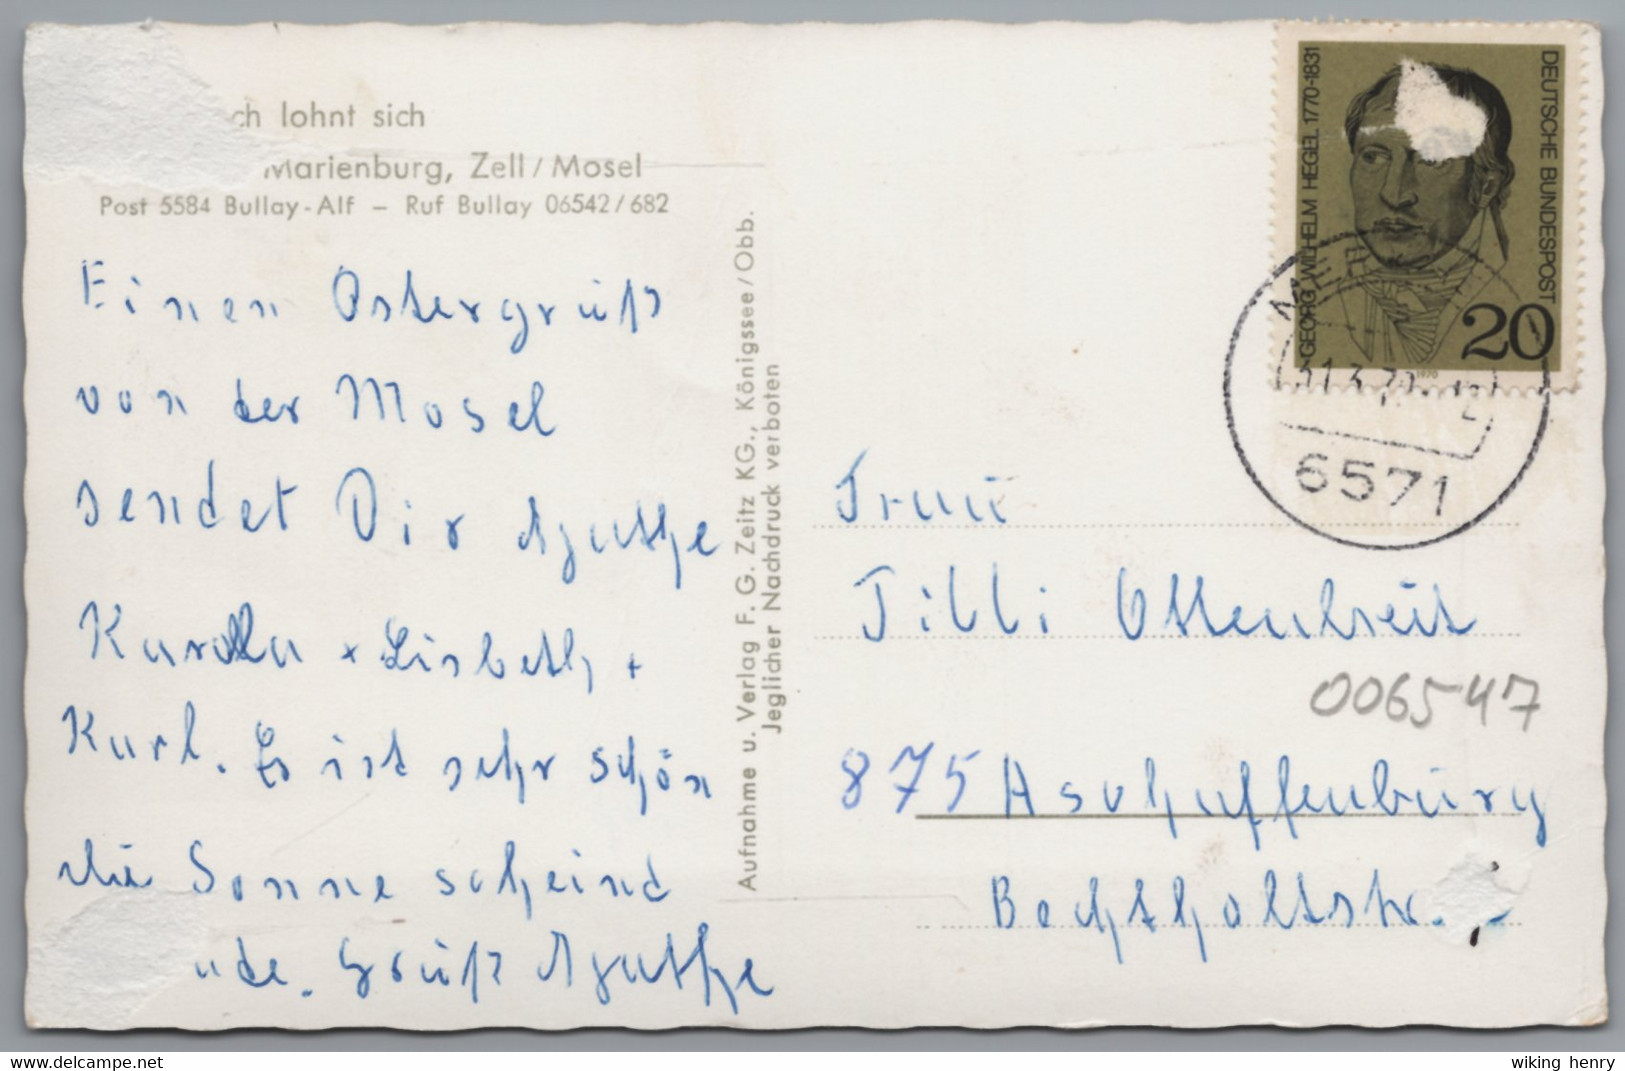 ch lohnt sich
Marienburg, Zell/Mosel
Post 5584 Bullay-Alf – Ruf Bullay 06542/682
Einen Ostergruß
von der Mosel
sendet Dir Agathe
Karola + Lisbeth +
Karl. Es ist sehr schön
die Sonne scheind
Gruß Agathe
Aufnahme u. Verlag F. G. Zeitz KG., Königssee/Obb.
Jeglicher Nachdruck verboten
GEORG WILHELM HEGEL 1770-1831
DEUTSCHE BUNDESPOST
20
1970
6571
Frau
Tilli Ottenbreit
006547
875 Aschaffenburg
Bechtholtstr.
www.delcampe.net
wiking henry